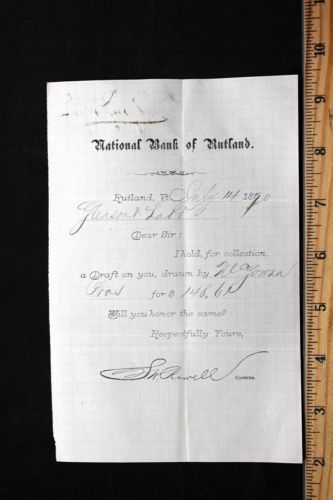 National Bank of Rutland.
Rutland, Vt. July 14 1870
Gleason &
Dear Sir:
I hold, for collection,
a Draft on you, drawn by
Bros for $ 148.61
Will you honor the same?
Respectfully Yours,
Cashier.
10
9
8
7
6
5
4
3
2